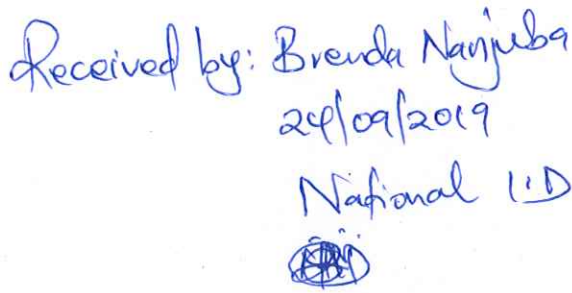 Received by: Brenda Nanjuba
24/09/2019
National I.D